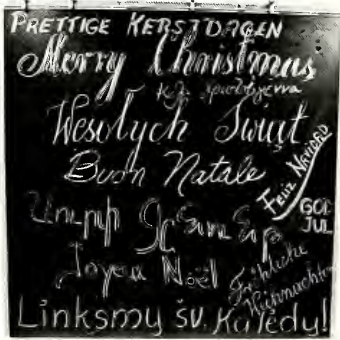 PRETTIGE KERSTDAGEN
Merry Christmas
Wesołych Świąt
Buon Natale
FELIZ NAVIDAD
GOD JUL
Joyeu Nöel
Fröhliche Weihnachten
Linksmų šv. Kalėdų!